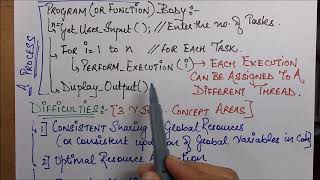 PROGRAM (OR FUNCTION) BODY:
n = Get User Input(); // Enter the no. of Tasks.
For i = 1 to n // FOR EACH TASK.
PERFORM_EXECUTION (i) → EACH EXECUTION
CAN BE ASSIGNED TO A
DIFFERENT THREAD.
Display_Output()
A PROCESS
DIFFICULTIES:- [3 CONCEPT AREAS]
1] CONSISTENT Sharing Global Resources
(OR consistent of Global Variables in Code)
2] Optimal Resource